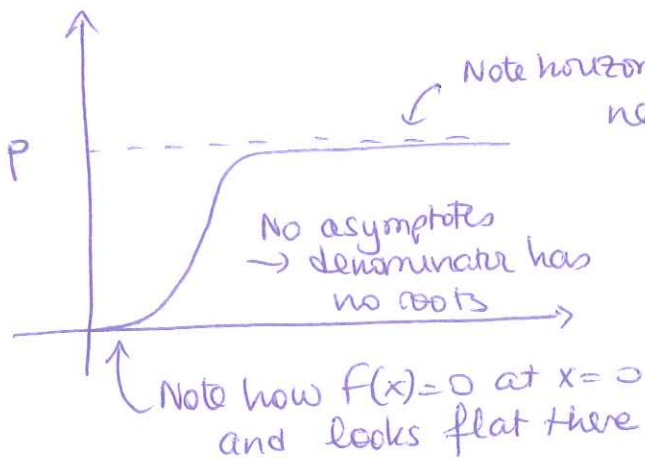 Note horizon
ne
P
No asymptotes
→ denominator has
no roots
Note how f(x)=0 at x=0
and looks flat there